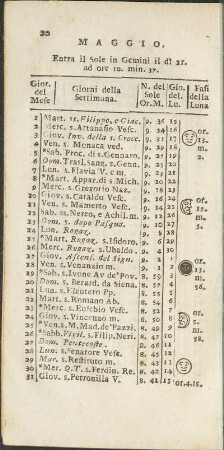 20
MAGGIO.
Entra il Sole in Gemini il dì 21.
ad ore 10. min. 37.
Gior. del Mese
Giorni della Settimana.
N. del Sole Or. M.
Gior. del. Lu.
Fasi della Luna
1 Mart. ss. Filippo, e Giac. 9. 36 15
2 Merc. s. Attanasio Vesc. 9. 34 16
3 Giov. Inv. della s. Croce. 9. 31 17
4 Ven. s. Monaca ved. 9. 29 18
5 *Sab. Proc. di s. Gennaro. 9. 27
6 Dom. Trasl. Sang. s. Genn. 9. 25
7 Lun. s. Flavia V. e m. 9. 22
8 *Mart. Appar. di s. Mich. 9. 20 22
9 Merc. s. Gregorio Naz. 9. 18 23
10 Giov. s. Cataldo Vesc. 9. 16
11 Ven. s. Mamerto Vesc. 9. 14
12 Sab. ss. Nereo, e Achil. m. 9. 12
13 Dom. s. dopo Pasqua. 9. 10
14 Lun. Rogaz. 9. 8
15 *Mart. Rogaz. s. Isidoro. 9. 6 29
16 Merc. Rogaz. s. Ubaldo. 9. 4 30
17 Giov. Ascens. del Sign. 9. 2 1
18 Ven. s. Venanzio m. 9. 1 2
19 *Sab. s. Ivone Av. de' Pov. 8. 59 3
20 Dom. s. Berard. da Siena. 8. 57 4
21 Lun. s. Eleutero Pp. 8. 55 5
22 Mart. s. Romano Ab. 8. 54 6
23 *Merc. s. Eusebio Vesc. 8. 52 7
24 Giov. s. Vincenzo m. 8. 50 8
25 *Ven. s. M. Mad. de' Pazzi. 8. 49 9
26 *Sabb. Vigil. s. Filip. Neri. 8. 47 10
27 Dom. Pentecoste. 8. 46 11
28 Lun. s. Senatore Vesc. 8. 45 12
29 Mar. s. Restituto m. 8. 44 13
30 *Mer. Q. T. s. Ferdin. Re. 8. 43 14
31 Giov. s. Petronilla V. 8. 42 15 or. 4. 15.